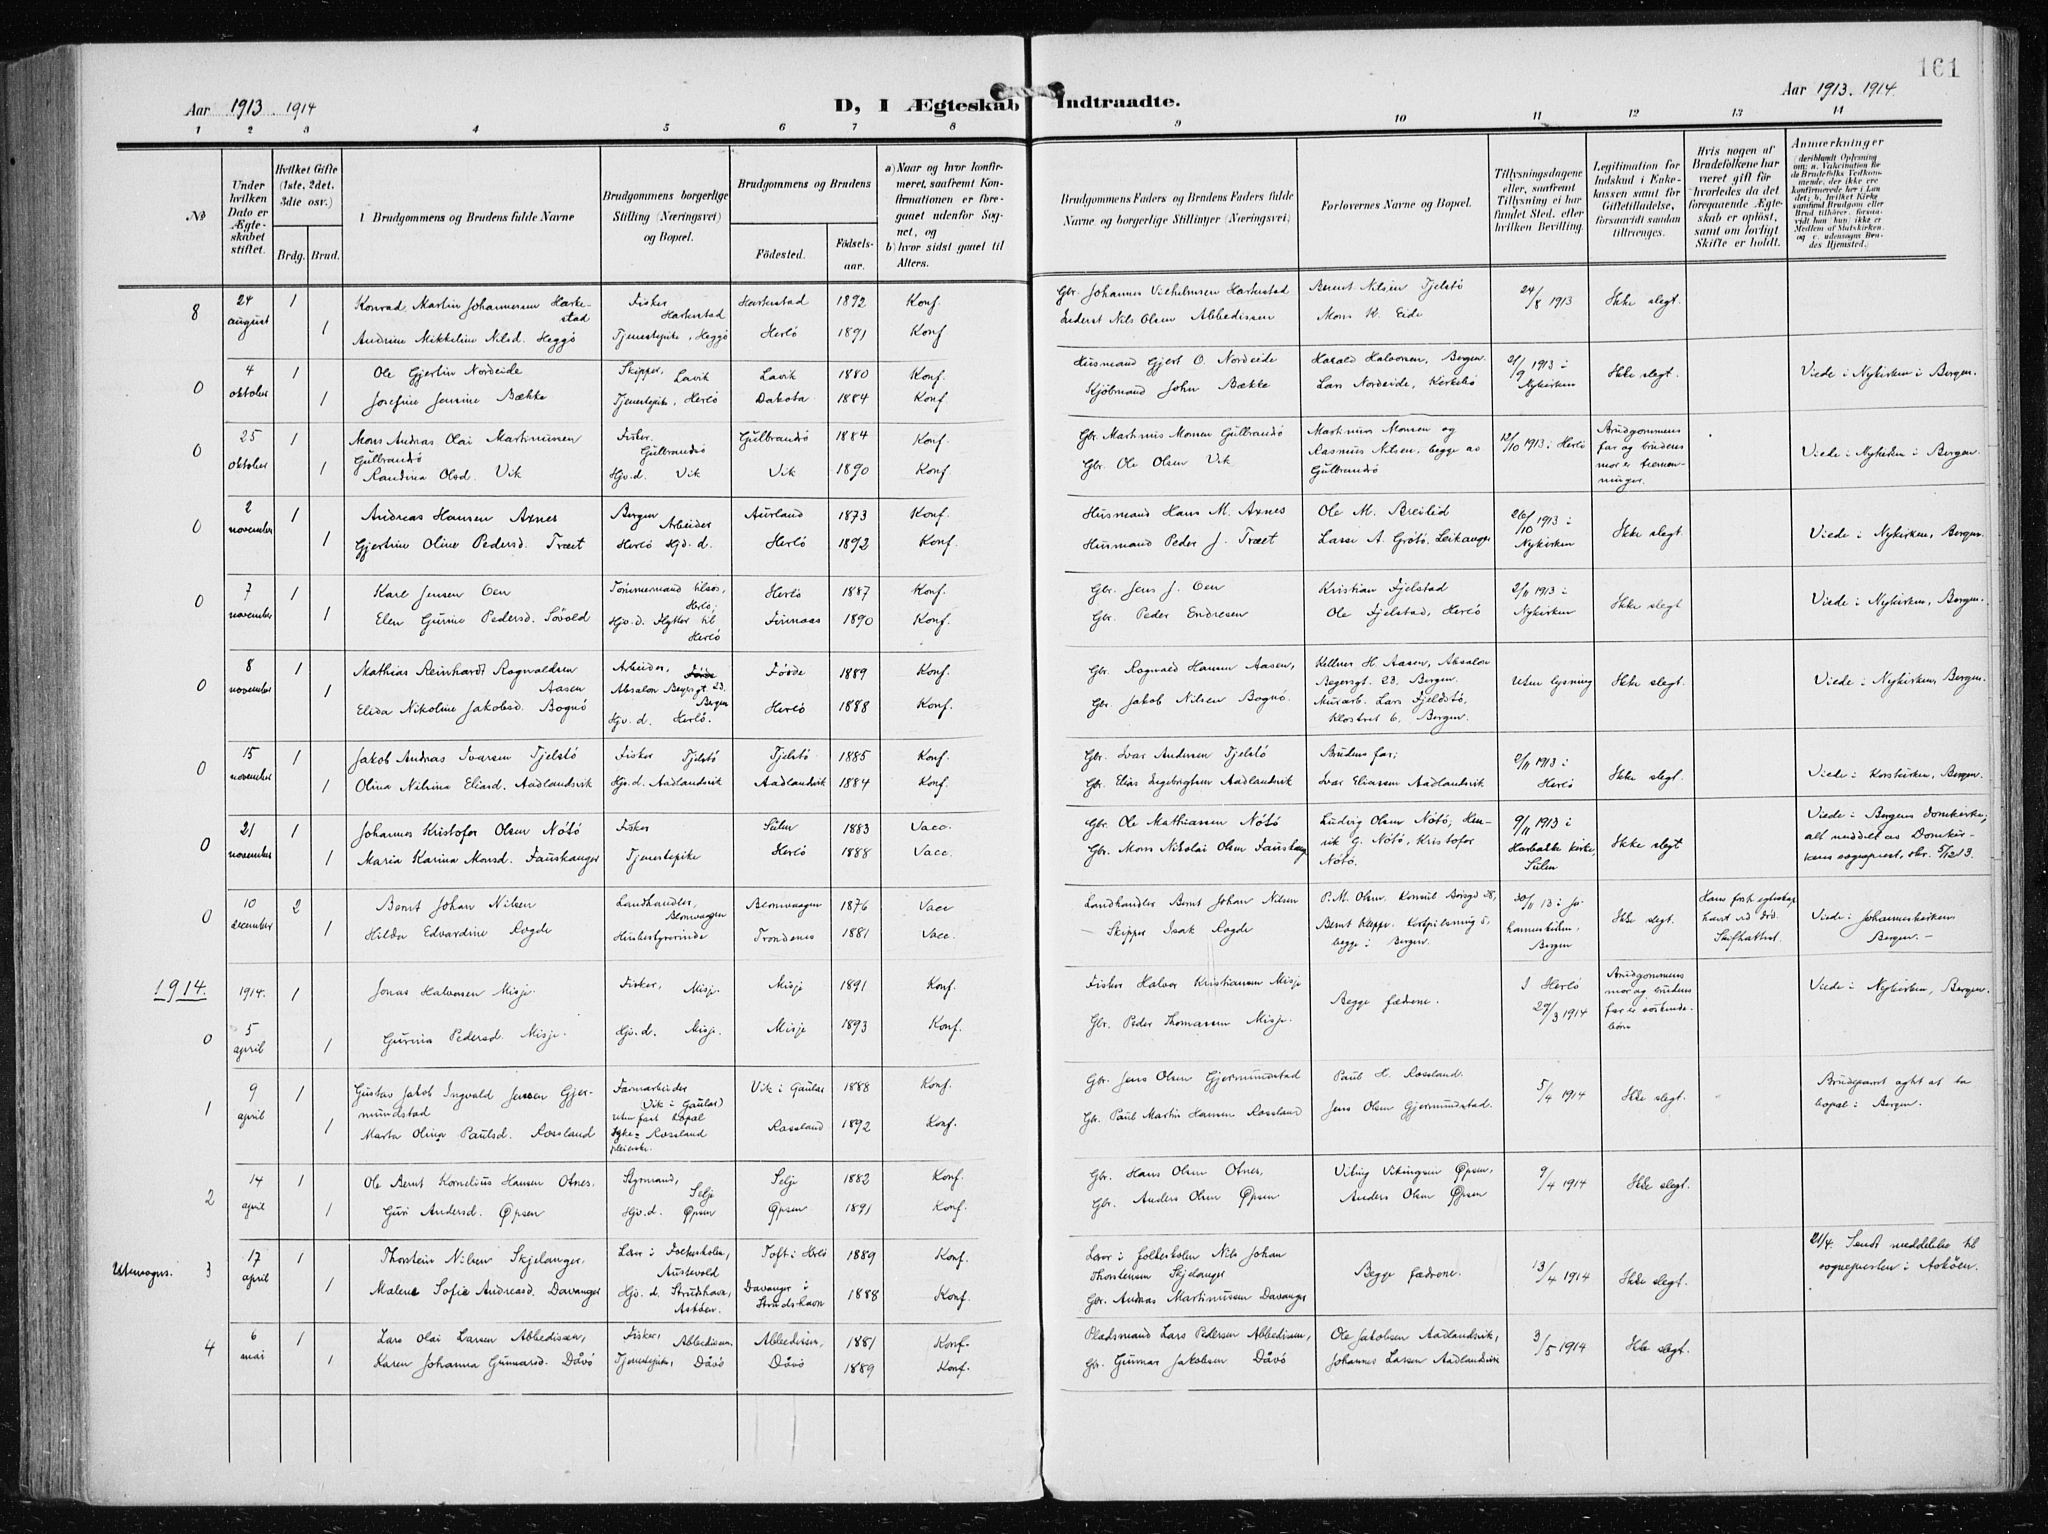 161
Aar 1913. 1914
D, I Ægteskab Indtraadte.
Aar 1913. 1914.
1 2 3 4 5 6 7 8 9 10 11 12 13 14
No
Under hvilken Dato er Ægteskabet stiftet.
Hvilket Gifte (1ste, 2det, 3die osv.)
Brdg. Brud.
Brudgommens og Brudens fulde Navne
Brudgommens borgerlige Stilling (Næringsvei) og Bopæl.
Brudgommens og Brudens
Födested. Födselsaar.
a) Naar og hvor konfirmeret, saafremt Konfirmationen er foregaaet udenfor Sognet, og
b) hvor sidst gaaet til Alters.
Brudgommens Faders og Brudens Faders fulde Navne og borgerlige Stillinger (Næringsvei)
Forlovernes Navne og Bopæl.
Tillysningsdagene eller, saafremt Tillysning ei har fundet Sted, efter hvilken Bevilling.
Legitimation for Indskud i Enkekassen samt for Giftetilladelse, forsaavidt saadan tiltrænges.
Hvis nogen af Brudefolkene har været gift før hvorledes da det foregaaende Ægteskab er opløst, samt om lovligt Skifte er holdt.
Anmærkninger
8 24 august 1 Konrad Martin Johannesen Harkestad Fisker Harkestad Harkestad 1892 Konf. Gbr. Johannes Vilhelmsen Harkestad Berent Nilsen Fjelstö 24/8 1913 Ikke slegt.
1 Andrine Mikkeline Nilsd. Heggö Tjenestepike, Heggö Herlö 1891 Konf Inderst Nils Olsen Abbedissen Mons K. Eide
0 4 oktober 1 Ole Gjertin Nordeide Skipper, Lavik Lavik 1880 Konf. Husmand Gjert O. Nordeide Harald Halvorsen, Bergen. 21/9 1913 i Nykirken Ikke slegt. Viede i Nykirken i Bergen.
1 Josefine Jensine Bække Tjenestepike, Herlö Dakota 1884 Konf Kjöbmand John Bække Lars Nordeide, Kirkebö
0 25 oktober 1 Mons Andreas Olai Martinussen Gulbrandsö Fisker. Gulbrandsö Gulbrandsö 1884 Konf. Gbr. Martinus Monsen Gulbrandsö Martinus Monsen og 12/10 1913 i Herlö Brudgommens far og brudens mor er tremenninger. Viede i Nykirken i Bergen.
1 Randina Olsd. Vik Hjv.d. Vik Vik 1890 Konf Gbr. Ole Olsen Vik Rasmus Nilsen, begge av Gulbrandsö
0 2 november 1 Andreas Hansen Axnes Bergen Arbeider Aurland 1873 Konf. Husmand Hans M. Axnes Ole M. Breilid 26/10 1913 i Nykirken Ikke slegt. Viede i Nykirken, Bergen.
1 Gjertine Oline Pedersd. Træet Herlö Hjv.d. Herlö 1892 Konf. Husmand Peder J. Træet Lasse A. Grötö, Leikanger
0 7 november 1 Karl Jensen Oen Tömmermand Herlö; Herlö 1887 Konf. Gbr. Jens J. Oen Kristian Fjelstad 2/11 1913 i Nykirken Ikke slegt Viede i Nykirken, Bergen.
1 Elen Gurine Pedersd. Sövold Hjv.d. Flytter til Herlö Finnaas 1890 Konf. Gbr. Peder Endresen Ole Fjelstad, Herlö
0 8 november 1 Mathias Reinhardt Ragnvaldsen Aasen Arbeider, Absalon Beyersgt 23. Bergen Förde 1889 Konf. Gbr. Ragnvald Hansen Aasen, Kellner H. Aasen, Absalon Begersgt. 23, Bergen. Uten lysning Ikke slegt. Viede i Nykirken, Bergen.
1 Elida Nikoline Jakobsd. Bognö Hjv.d. Herlö. Herlö 1888 Konf. Gbr. Jakob Nilsen Bognö. Murarb. Lars Fjeldstö, Klostret 6, Bergen.
0 15 november 1 Jakob Andreas Ivarsen Fjelstö Fisker Fjelstö Fjelstö 1885 Konf. Gbr. Ivar Andersen Fjelstö Brudens far; 2/11 1913 i Herlö Ikke slegt. Viede i Korskirken, Bergen.
1 Olina Nilsina Eliasd. Aadlandsvik Hjv.d. Aadlandsvik Aadlandsvik 1884 Konf. Gbr. Elias Ingebrigtsen Aadlandsvik Ivar Eliassen Aadlandsvik
0 21 november 1 Johannes Kristofer Olsen Nötö Fisker Sulen 1883 Vacc. Gbr. Ole Mathiassen Nötö Ludvig Olsen Nötö; Henrik G. Nötö, Kristofer Nötö. 9/11 1913 i Harbakke kirke, Sulen Ikke slegt Viede i Bergens Domkirke, alt meddelt av Domkirkens sogneprest, skr. 5/12 13.
1 Maria Karina Monsd. Fauskanger Tjenestepike Herlö 1888 Vacc. Gbr. Mons Nikolai Olsen Fauskanger
0 10 december 2 Bernt Johan Nilsen Landhandler, Blomvaagen Blomvaagen 1876 Vacc Landhandler Bernt Johan Nilsen P.M. Olsen, Konsul Börsgd 28, 30/11 13 i Johanneskirken, Bergen Ikke slegt. Hans første egteskap hævet ved död. Skifteattest. Viede i Johanneskirken Bergen. –
1 Hilda Edvardine Rogde Husbestyrerinde Trondenes 1881 Vacc. – Skipper Isak Rogde Bernt Kleppe, 5, begge i Bergen.
1914.
0 1914. 5 april 1 Jonas Halvorsen Misje. Fisker, Misje. Misje 1891 Konf. Fisker Halvor Kristiansen Misje Begge fædrene. I Herlö 29/3 1914 Brudgommens mor og brudens far er söskendebörn Viede i Nykirken, Bergen.
1 Gurina Pedersd. Misje. Hjv.d. Misje. Misje 1893 Konf. Gbr. Peder Thomassen Misje.
1 9 april 1 Gustav Jakob Ingvald Jensen Gjermundstad Farmarbeider Vik i Gaular uten fast bopæl Vik i Gaular 1888 Konf. Gbr. Jens Olsen Gjermundstad Paul H. Rossland. 5/4 1914 Ikke slegt. Brudeparret agter at ta bopæl i Bergen.
1 Marta Olina Paulsd. Rossland Sykepleierske. Rossland Rossland 1892 Konf. Gbr. Paul Martin Hansen Rossland Jens Olsen Gjermundstad.
2 14 april 1 Ole Bernt Kornelius Hansen Otnes. Styrmand, Selje Selje 1882 Konf. Gbr. Hans Olsen Otnes, Viking Vikingsen Øpsen, 9/4 1914 Ikke slegt.
1 Guri Andersd. Øpsen Hjv.d. Øpsen Øpsen 1891 Konf. Gbr. Anders Olsen Øpsen Anders Olsen Øpsen
Utensogns. 3 17 april 1 Thorstein Nilsen Skjelanger, Lærer i Folkeskolen, Austevold Toft i Herlö 1889 Konf. Lærer i folkeskolen Nils Johan Thorstensen Skjelanger Begge fædrene. 13/4 1914 Ikke slegt. 21/4. Sendt meddelelse til sognepresten i Askøen.
1 Malene Sofie Andreasd. Davanger Hjv.d. Strudshavn, Askøen. Davanger i Strudshavn 1888 Konf. Gbr. Andreas Martinussen Davanger
4 6 mai 1 Lars Olai Larsen Abbedissen, Fisker, Abbedissen, Abbedissen, 1881 Konf. Pladsmand Lars Pedersen Abbedissen, Ole Jakobsen Aadlandsvik, 3/5 1914 Ikke slegt.
1 Karen Johanna Gunnarsd. Dåvö Tjenestepike, Dåvö Dåvö 1889 Konf. Gbr. Gunnar Jakobsen Dåvö Johannes Larsen Aadlandsvik